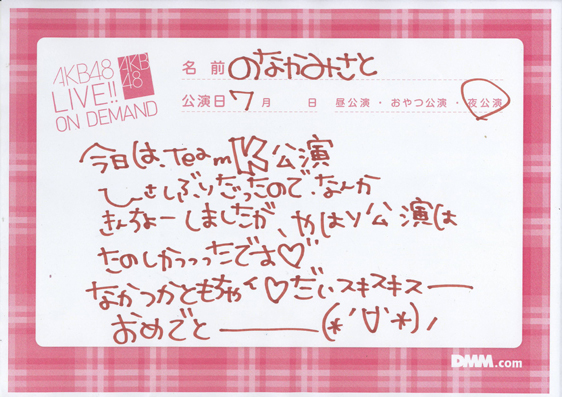 AKB48
LIVE!!
ON DEMAND
AKB
48
名前 のなかみさと
公演日 7月 日 昼公演・おやつ公演・夜公演
今日は、TeamK公演
ひさしぶりだったので、なんか
きんちょーしましたが、やはり公演は
たのしかっったです♡"
なかつかともちゃィ♡だぃスキスキスー
おめでとー(*'∀'*)ノ
DMM.com